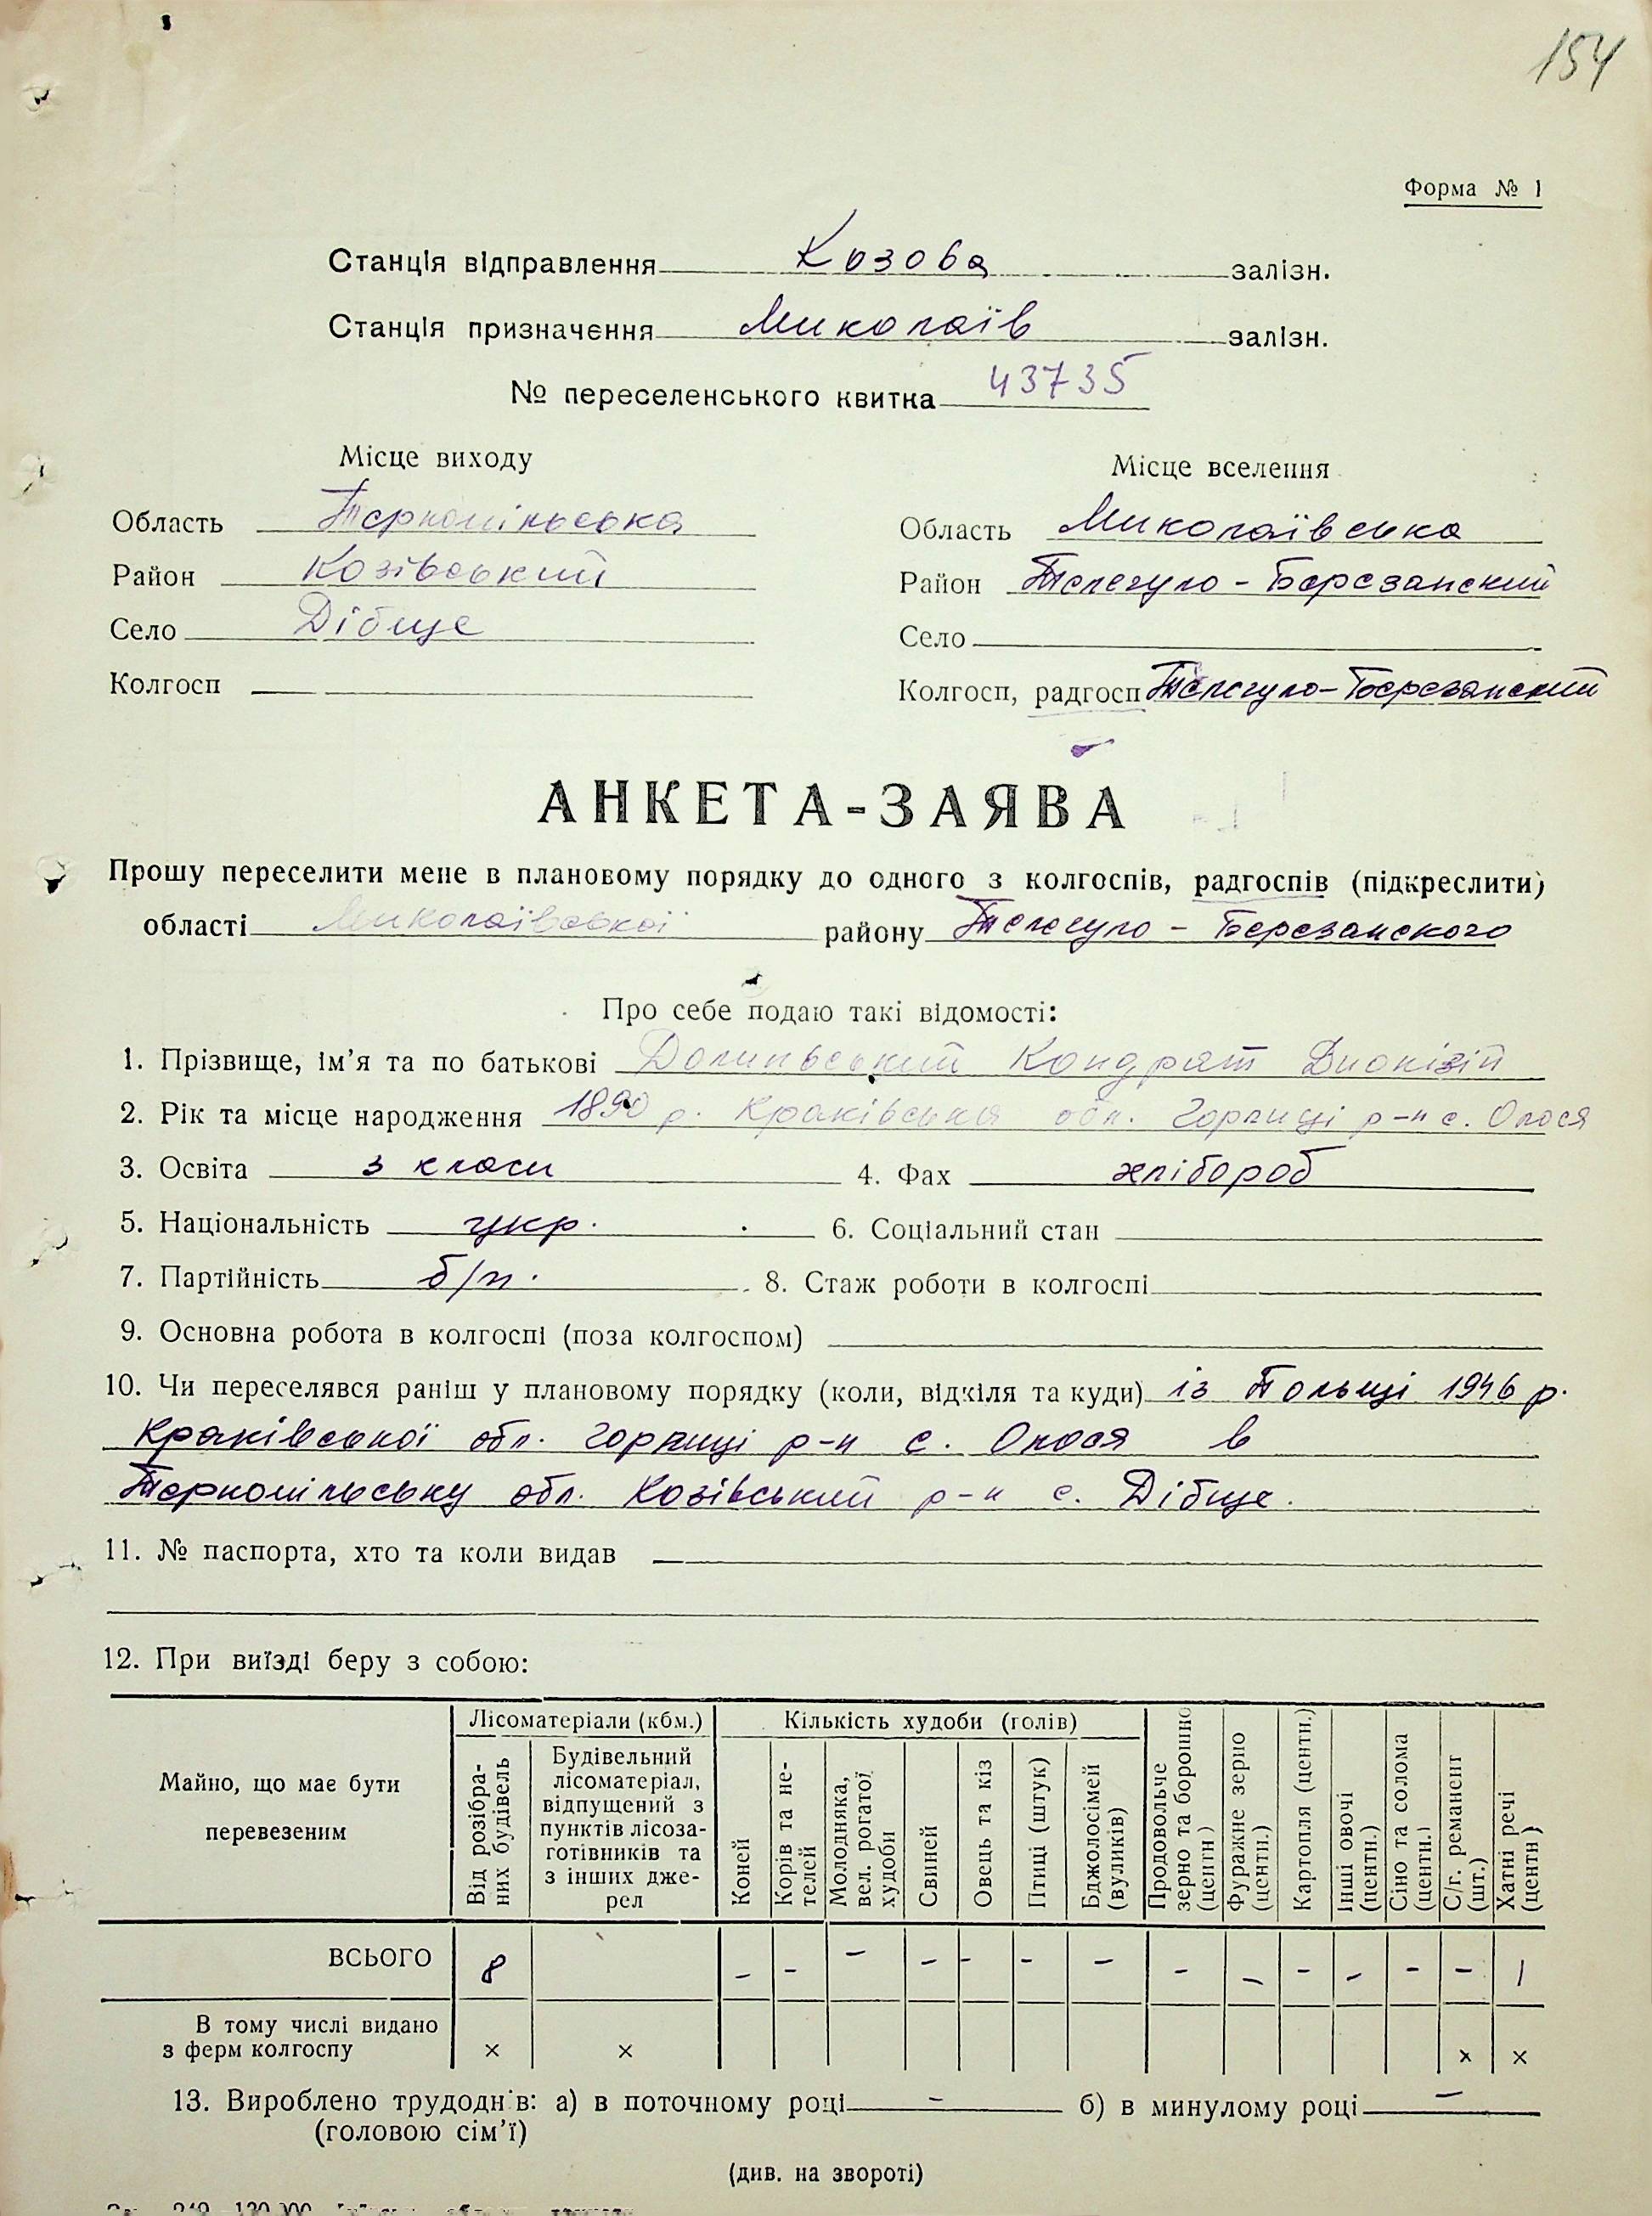 154
Форма № 1
Станція відправлення Козова залізн.
Станція призначення Миколаїв залізн.
№ переселенського квитка 43735
Місце виходу
Місце вселення
Область Тернопільська
Область Миколаївська
Район Козівський
Район Телегуло-Березанский
Село Дібще
Село
Колгосп
Колгосп, радгосп Телегуло-Березанский
АНКЕТА-ЗАЯВА
Прошу переселити мене в плановому порядку до одного з колгоспів, радгоспів (підкреслити)
області Миколаївської району Телегуло-Березанского
Про себе подаю такі відомості:
1. Прізвище, ім'я та по батькові Долинський Кондрат Дионізій
2. Рік та місце народження 1890 р. Краківська обл. Горлиці р-н с.
3. Освіта 3 класи 4. Фах хлібороб
5. Національність укр. 6. Соціальний стан
7. Партійність б/п. 8. Стаж роботи в колгоспі
9. Основна робота в колгоспі (поза колгоспом)
10. Чи переселявся раніш у плановому порядку (коли, відкіля та куди) із Польщі 1946 р.
Краківської обл. Горлиці р-н с. в
Тернопільську обл. Козівський р-н с. Дібще.
11. № паспорта, хто та коли видав —
12. При виїзді беру з собою:
Майно, що має бути перевезеним
Лісоматеріали (кбм.)
Кількість худоби (голів)
Від розібраних будівель
Будівельний
лісоматеріал,
відпущений з
пунктів лісоза-
готівників та
з інших дже-
рел
Коней
Корів та не-
телей
Молодняка,
вел. рогатої
худоби
Свиней
Овець та кіз
Птиці (штук)
Бджолосімей
(вуликів)
Продовольче
зерно та борошно
(центн)
Фуражне зерно
(центн.)
Картопля (центн.)
Інші овочі
(центн.)
Сіно та солома
(центн.)
С/г. реманент
(шт.)
Хатні речі
(центн)
ВСЬОГО 8 – – – – – – – – – – – – – 1
В тому числі видано
з ферм колгоспу × × × ×
13. Вироблено трудоднів: а) в поточному році – б) в минулому році –
(головою сім'ї)
(див. на звороті)